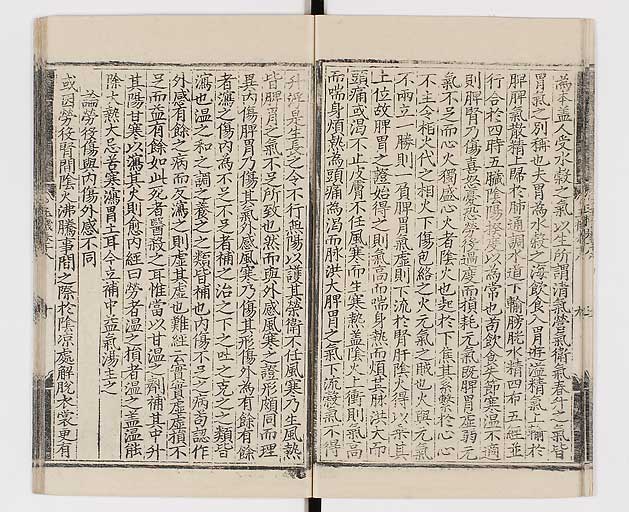 為本盖人受水穀之氣以生所謂清氣營氣衛氣春升之氣皆
胃氣之別稱也夫胃為水穀之海飲食入胃遊溢精氣上輸於
脾脾氣散精上歸於肺通調水道下輸膀胱水精四布五經並
行合於四時五臓陰陽揆度以為常也苟飲食失節寒温不適
則脾胃乃傷喜怒憂恐勞役過度而損耗元氣既脾胃虛弱元
氣不足而心火獨盛心火者陰火也起於下焦其系繫於心心
不主令相火代之相火下焦包絡之火元氣之賊也火與元氣
不兩立一勝則一負脾胃氣虛則下流於腎肝陰火得以乘其
上位故脾胃之證始得之則氣高而喘身熱而煩其脉洪大而
頭痛或渴不止皮膚不任風寒而生寒熱盖陰火上衝則氣高
而喘身煩熱為頭痛為渴而脉洪大脾胃之氣下流穀氣不得
升浮是生長之令不行無陽以護其榮衛不任風寒乃生風熱
皆脾胃之氣不足所致也然而與外感風寒之證形頗同而理
異内傷脾胃乃傷其氣外感風寒乃傷其形傷外為有餘有餘
者瀉之傷内為不足不足者補之治之下之吐之克之之類皆
瀉也温之和之調之養之之類皆補也内傷不足之病苟認作
外感有餘之病而反瀉之則虛其虛也難經云實實虛虛損不
足而益有餘如此死者醫殺之耳惟當以甘温之劑補其中升
其陽甘寒以瀉其火則愈内經曰勞者温之損者温之盖温能
除大熱大忌苦寒瀉胃土耳今立補中益氣湯主之
論勞役傷與内傷外感不同
或因勞役腎間陰火沸騰事間之際於陰凉處解脱衣裳更有